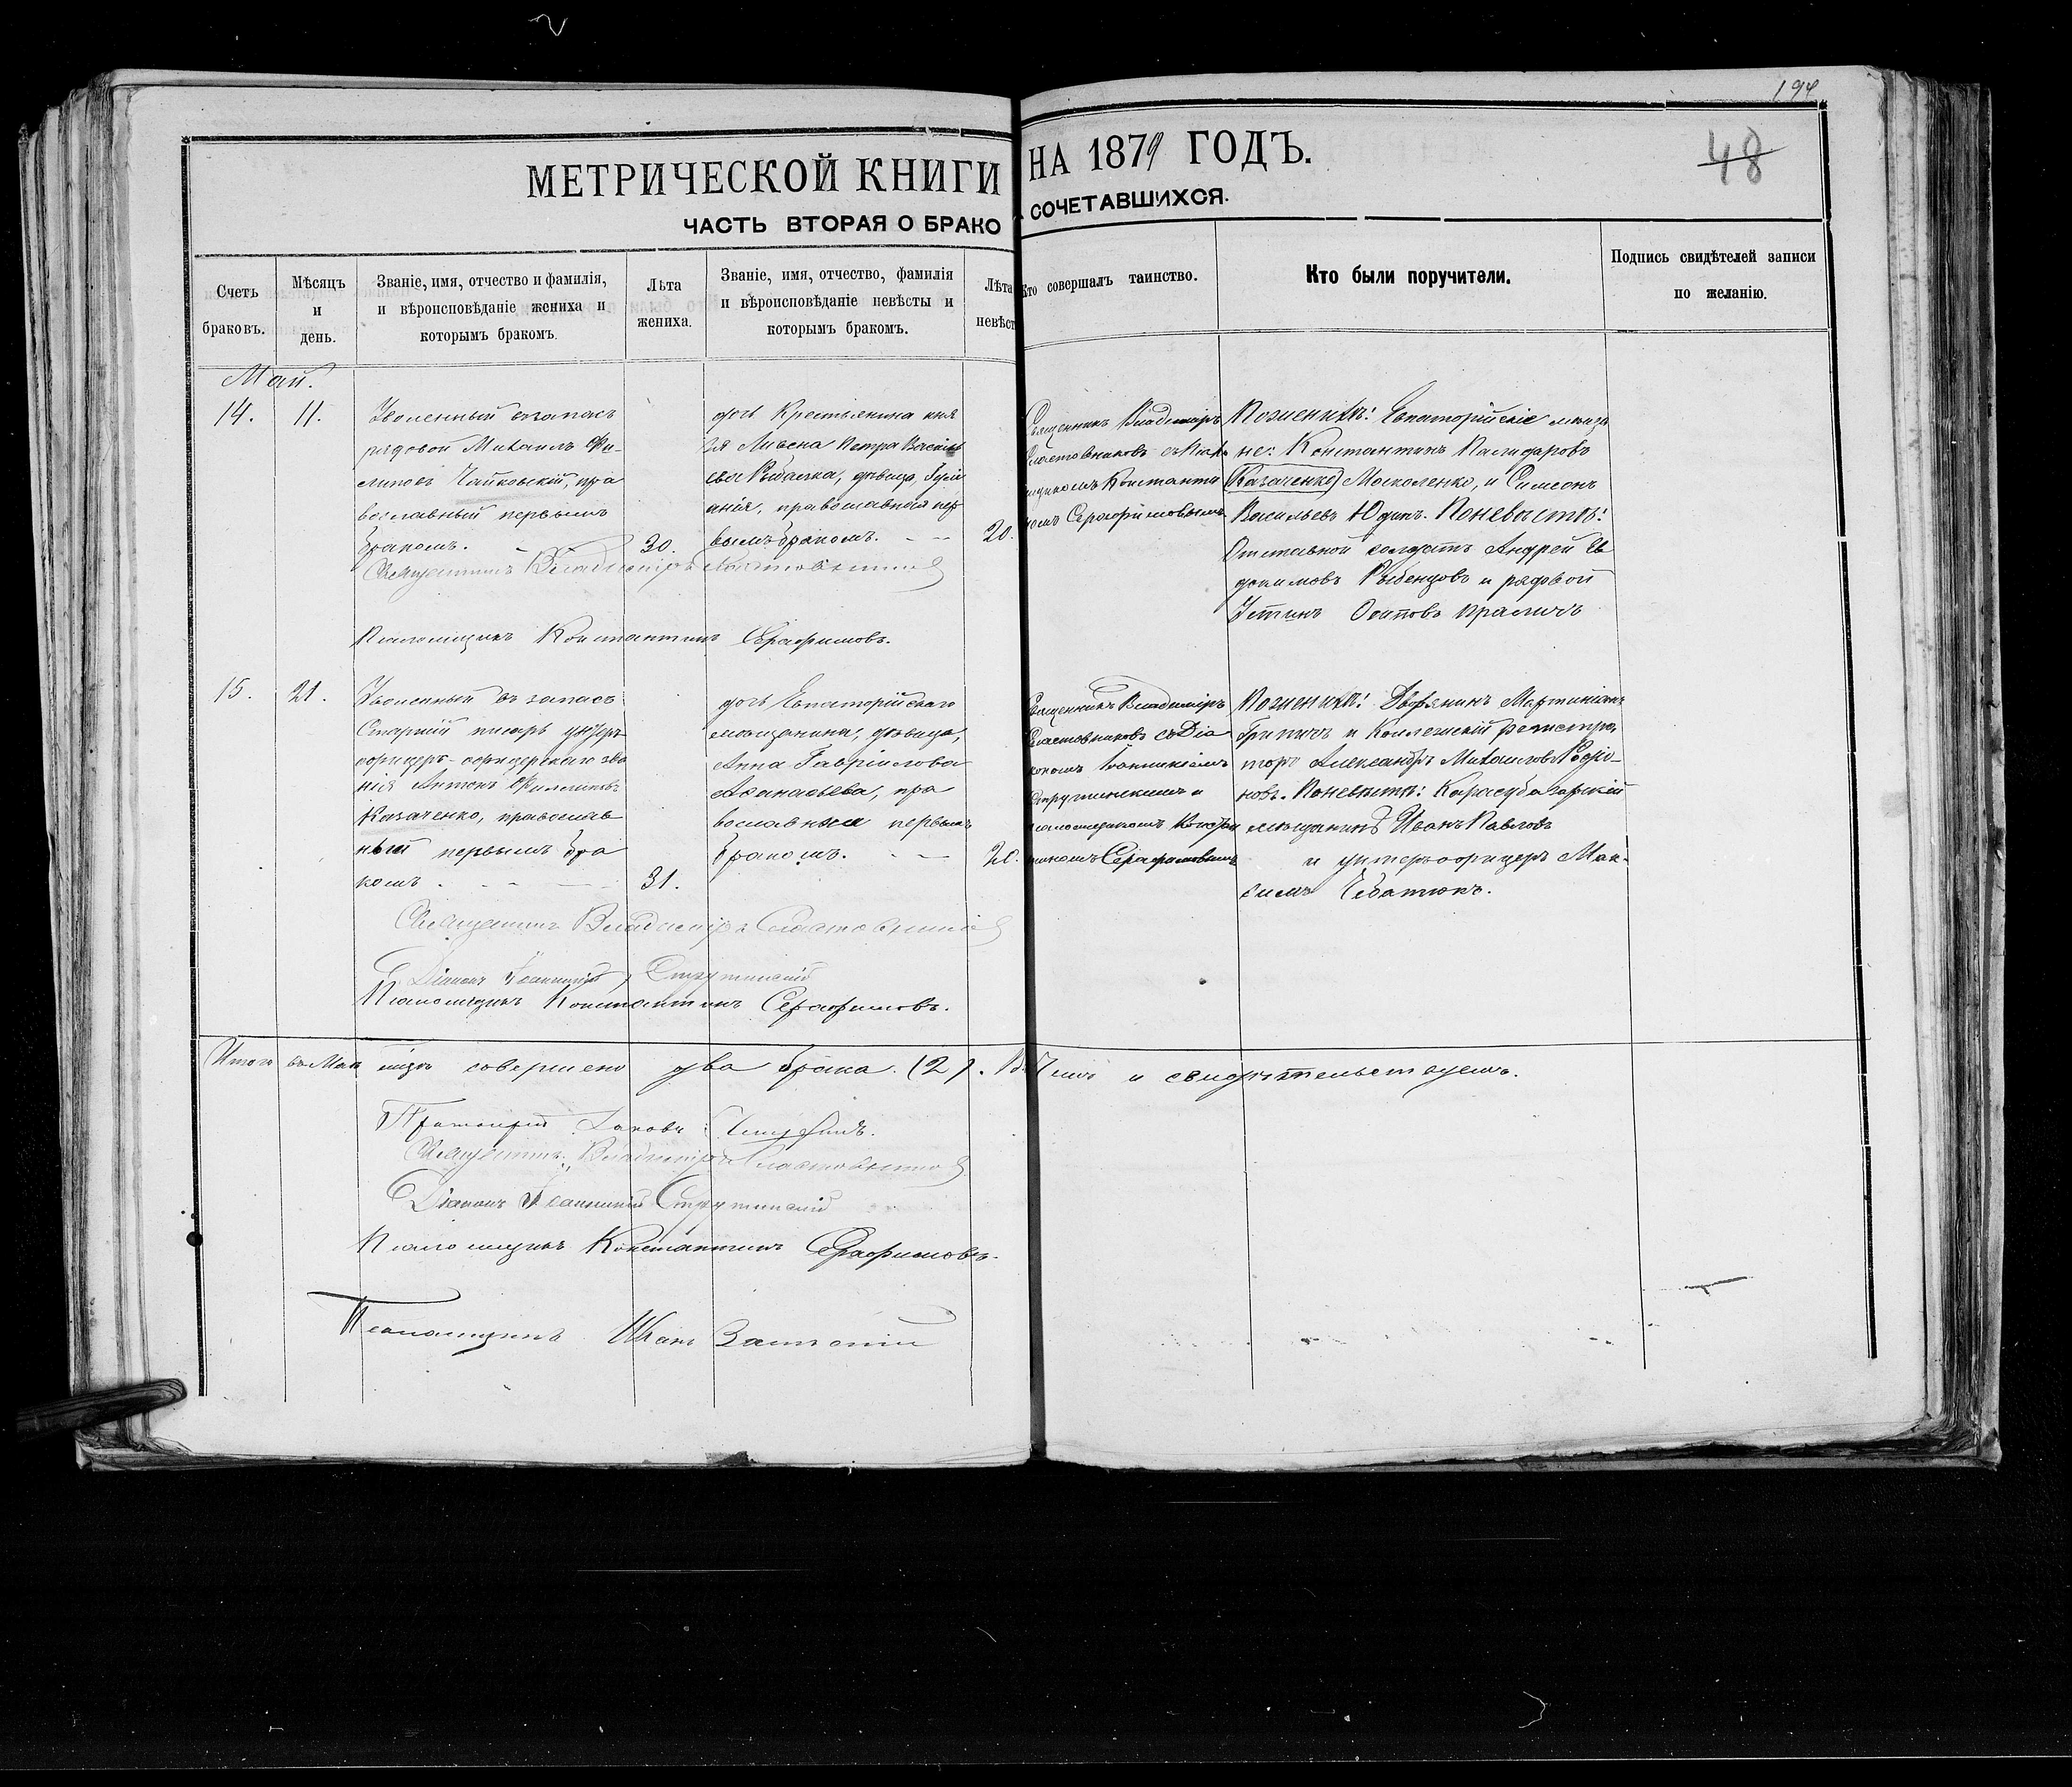 194
48
МЕТРИЧЕСКОЙ КНИГИ НА 1879 ГОДЪ.
ЧАСТЬ ВТОРАЯ О БРАКОСОЧЕТАВШИХСЯ.
Счетъ браковъ.
Мѣсяцъ и день.
Званіе, имя, отчество и фамилія,
и вѣроисповѣданіе жениха и
которымъ бракомъ.
Лѣта
жениха.
Званіе, имя, отчество, фамилія
и вѣроисповѣданіе невѣсты и
которымъ бракомъ.
Лѣта
невѣст
Кто совершалъ таинство.
Кто были поручители.
Подпись свидѣтелей записи
по желанію.
Май.
14.
11.
Уволенный въ запасъ
рядовой Михаилъ Фи-
липовъ Чайковскій, пра
вославный первымъ
бракомъ.
30.
дочь Крестьянина кня
зя Ливена Петра Василь
ева Рыбалка, дѣвица,
православная пер
вымъ бракомъ.
20.
Священникъ Владиміръ
Сластовниковъ съ Псал
щикомъ Константи
номъ Серафимовымъ
По женихѣ: Евпаторійскіе мѣща
не: Константинъ
Казаченко Москаленко, и Симеонъ
Васильевъ Юдинъ. По невѣстѣ:
Отставной солдатъ Андрей Ев
докимовъ Рыбенцовъ и рядовой
Устинъ Осиповъ
Священникъ Владиміръ Сластовниковъ
Псаломщикъ Константинъ Серафимовъ.
15.
21.
Уволенный въ запасъ
Старшій писарь унтеръ
офицеръ-офицерскаго зва
нія Антонъ Филиповъ
Казаченко, православ
ный первымъ бра
комъ.
31.
дочь Евпаторійскаго
мѣщанина, дѣвица,
Анна Гавріилова
Аѳанасьева, пра
вославная первымъ
бракомъ.
20.
Священникъ Владиміръ
Сластовниковъ съ Діа
кономъ Іоанникіемъ
Струтинскимъ и
псаломщикомъ Констан
тиномъ Серафимовымъ
По женихѣ: Дворянинъ Мартиніанъ
и Коллежскій регистра
торъ Александръ Михаиловъ Родіо-
новъ. По невѣстѣ: Карасубазарскій
мѣщанинъ Иванъ Павловъ
и унтеръ офицеръ Мак-
симъ
Священникъ Владиміръ Сластовниковъ
Діаконъ Іоанникій Струтинскій
Псаломщикъ Константинъ Серафимовъ.
Итого въ Маѣ мѣсяцѣ совершено два брака (2). Въ чемъ и свидѣтельствуемъ.
Протоіерей Іаковъ
Священникъ Владиміръ Сластовниковъ
Діаконъ Іоанникій Струтинскій
Псаломщикъ Константинъ Серафимовъ.
Псаломщикъ Иванъ